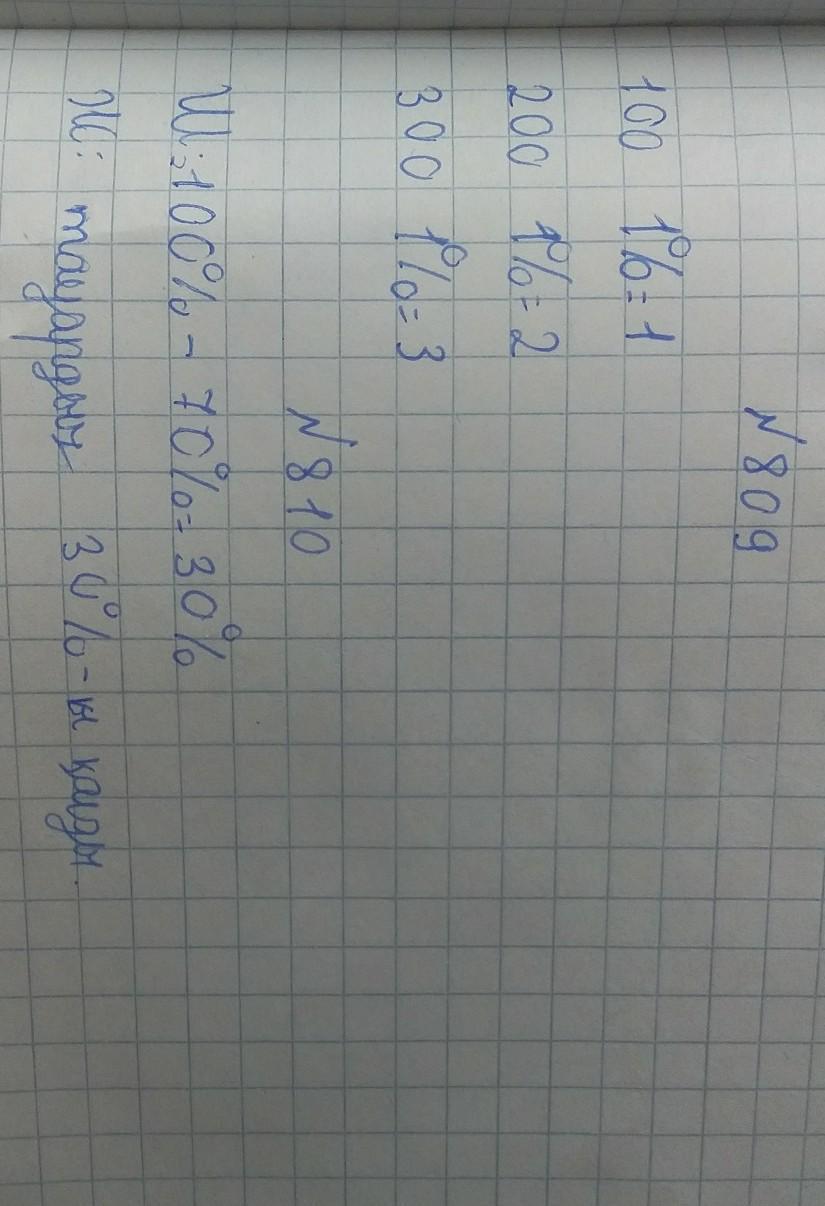 №809
100 1%=1
200 1%=2
300 1%=3
№810
Ш: 100% - 70% = 30%
Ж: тауардың 30%-ы қалды.